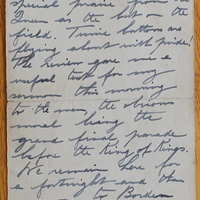 special praise from the
Queen as the best on the
field. Tunic buttons are
flying about with pride!
The review gave me a
useful text for my
sermon this morning
to the men the obvious
moral being the
grand final parade
before the King of Kings.
We remain here for
a fortnight and then
to Borden